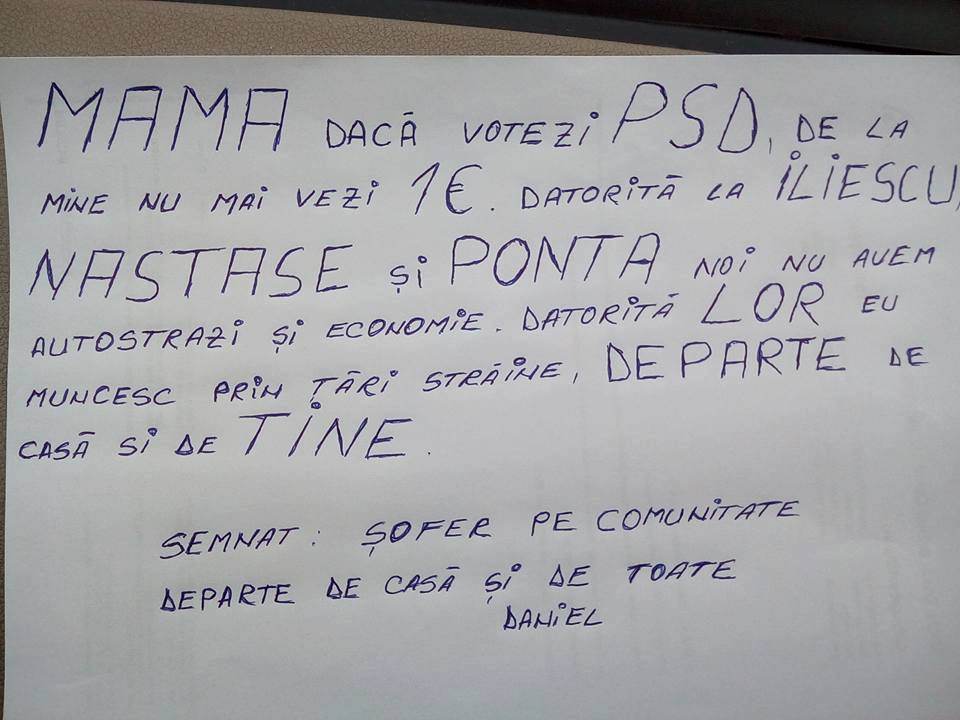 MAMA DACĂ VOTEZI PSD, DE LA
MINE NU MAI VEZI 1€. DATORITĂ LA ILIESCU,
NASTASE ȘI PONTA NOI NU AVEM
AUTOSTRAZI ȘI ECONOMIE. DATORITĂ LOR EU
MUNCESC PRIN ȚĂRI STRĂINE, DEPARTE DE
CASĂ SI DE TINE.
SEMNAT: ȘOFER PE COMUNITATE
DEPARTE DE CASĂ ȘI DE TOATE
DANIEL